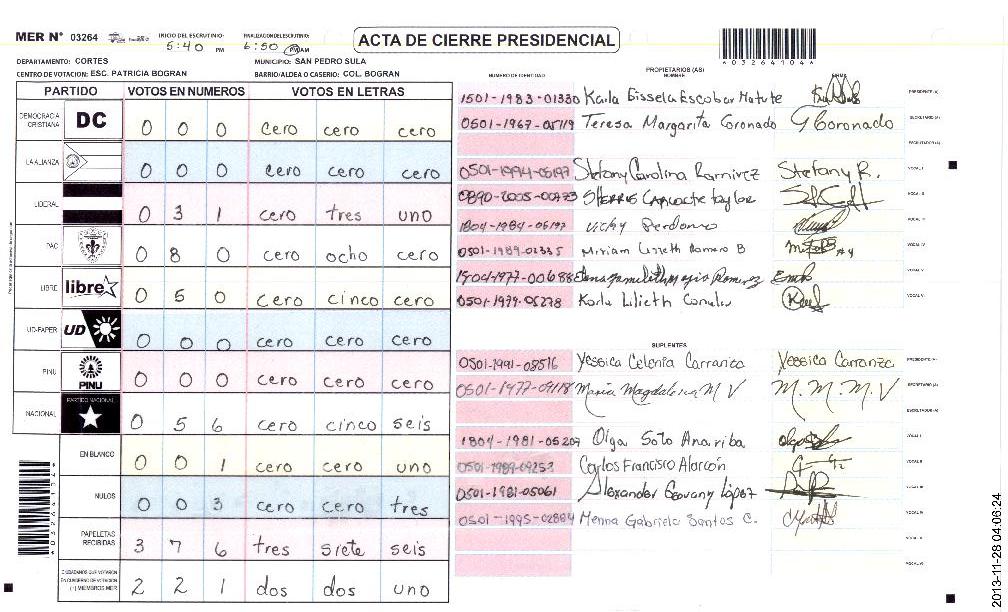 MER N° 03264
INICIO DEL ESCRUTINIO:
5:40 PM
FINALIZACION DEL ESCRUTINIO:
6:50 PM AM
ACTA DE CIERRE PRESIDENCIAL
4032641044
DEPARTAMENTO: CORTES
MUNICIPIO: SAN PEDRO SULA
CENTRO DE VOTACION: ESC. PATRICIA BOGRAN
BARRIO/ALDEA O CASERIO: COL. BOGRAN
PARTIDO VOTOS EN NUMEROS VOTOS EN LETRAS
DEMOCRACIA CRISTIANA DC 0 0 0 cero cero cero
LA ALIANZA 0 0 0 cero cero cero
LIBERAL 0 3 1 cero tres uno
PAC 0 8 0 cero ocho cero
LIBRE libre 0 5 0 cero cinco cero
UD-FAPER UD 0 0 0 cero cero cero
PINU PINU 0 0 0 cero cero cero
NACIONAL PARTIDO NACIONAL 0 5 6 cero cinco seis
EN BLANCO 0 0 1 cero cero uno
NULOS 0 0 3 cero cero tres
PAPELETAS RECIBIDAS 3 7 6 tres siete seis
CIUDADANOS QUE VOTARON EN CUADERNO DE VOTACION (+) MIEMBROS MER 2 2 1 dos dos uno
NUMERO DE IDENTIDAD PROPIETARIOS (AS) NOMBRE FIRMA
1501-1983-01330 Karla Gissela Escobar Matute PRESIDENTE (A)
0501-1967-05119 Teresa Margarita Coronado G Coronado SECRETARIO (A)
ESCRUTADOR (A)
0501-1994-05197 Stefany Carolina Ramirez Stefany R. VOCAL I
0890-2005-00473 VOCAL II
1804-1984-05197 Vicky Perdomo VOCAL III
0501-1989-01335 Miriam Lizeth Romero B VOCAL IV
VOCAL V
0501-1979-05278 Karla Lilieth VOCAL VI
SUPLENTES
0501-1991-08516 Yessica Celenia Carranza Yessica Carranza PRESIDENTE (A)
0501-1977-09118 Maria Magdalena M V M. M. M. V SECRETARIO (A)
ESCRUTADOR (A)
1804-1981-05207 Olga Soto Anariba VOCAL I
0501-1989-09253 Carlos Francisco Alarcón VOCAL II
0501-1981-05061 Alexander Geovany López VOCAL III
0501-1995-02884 Menna Gabriela Santos C. VOCAL IV
VOCAL V
VOCAL VI
2013-11-28 04:06:24